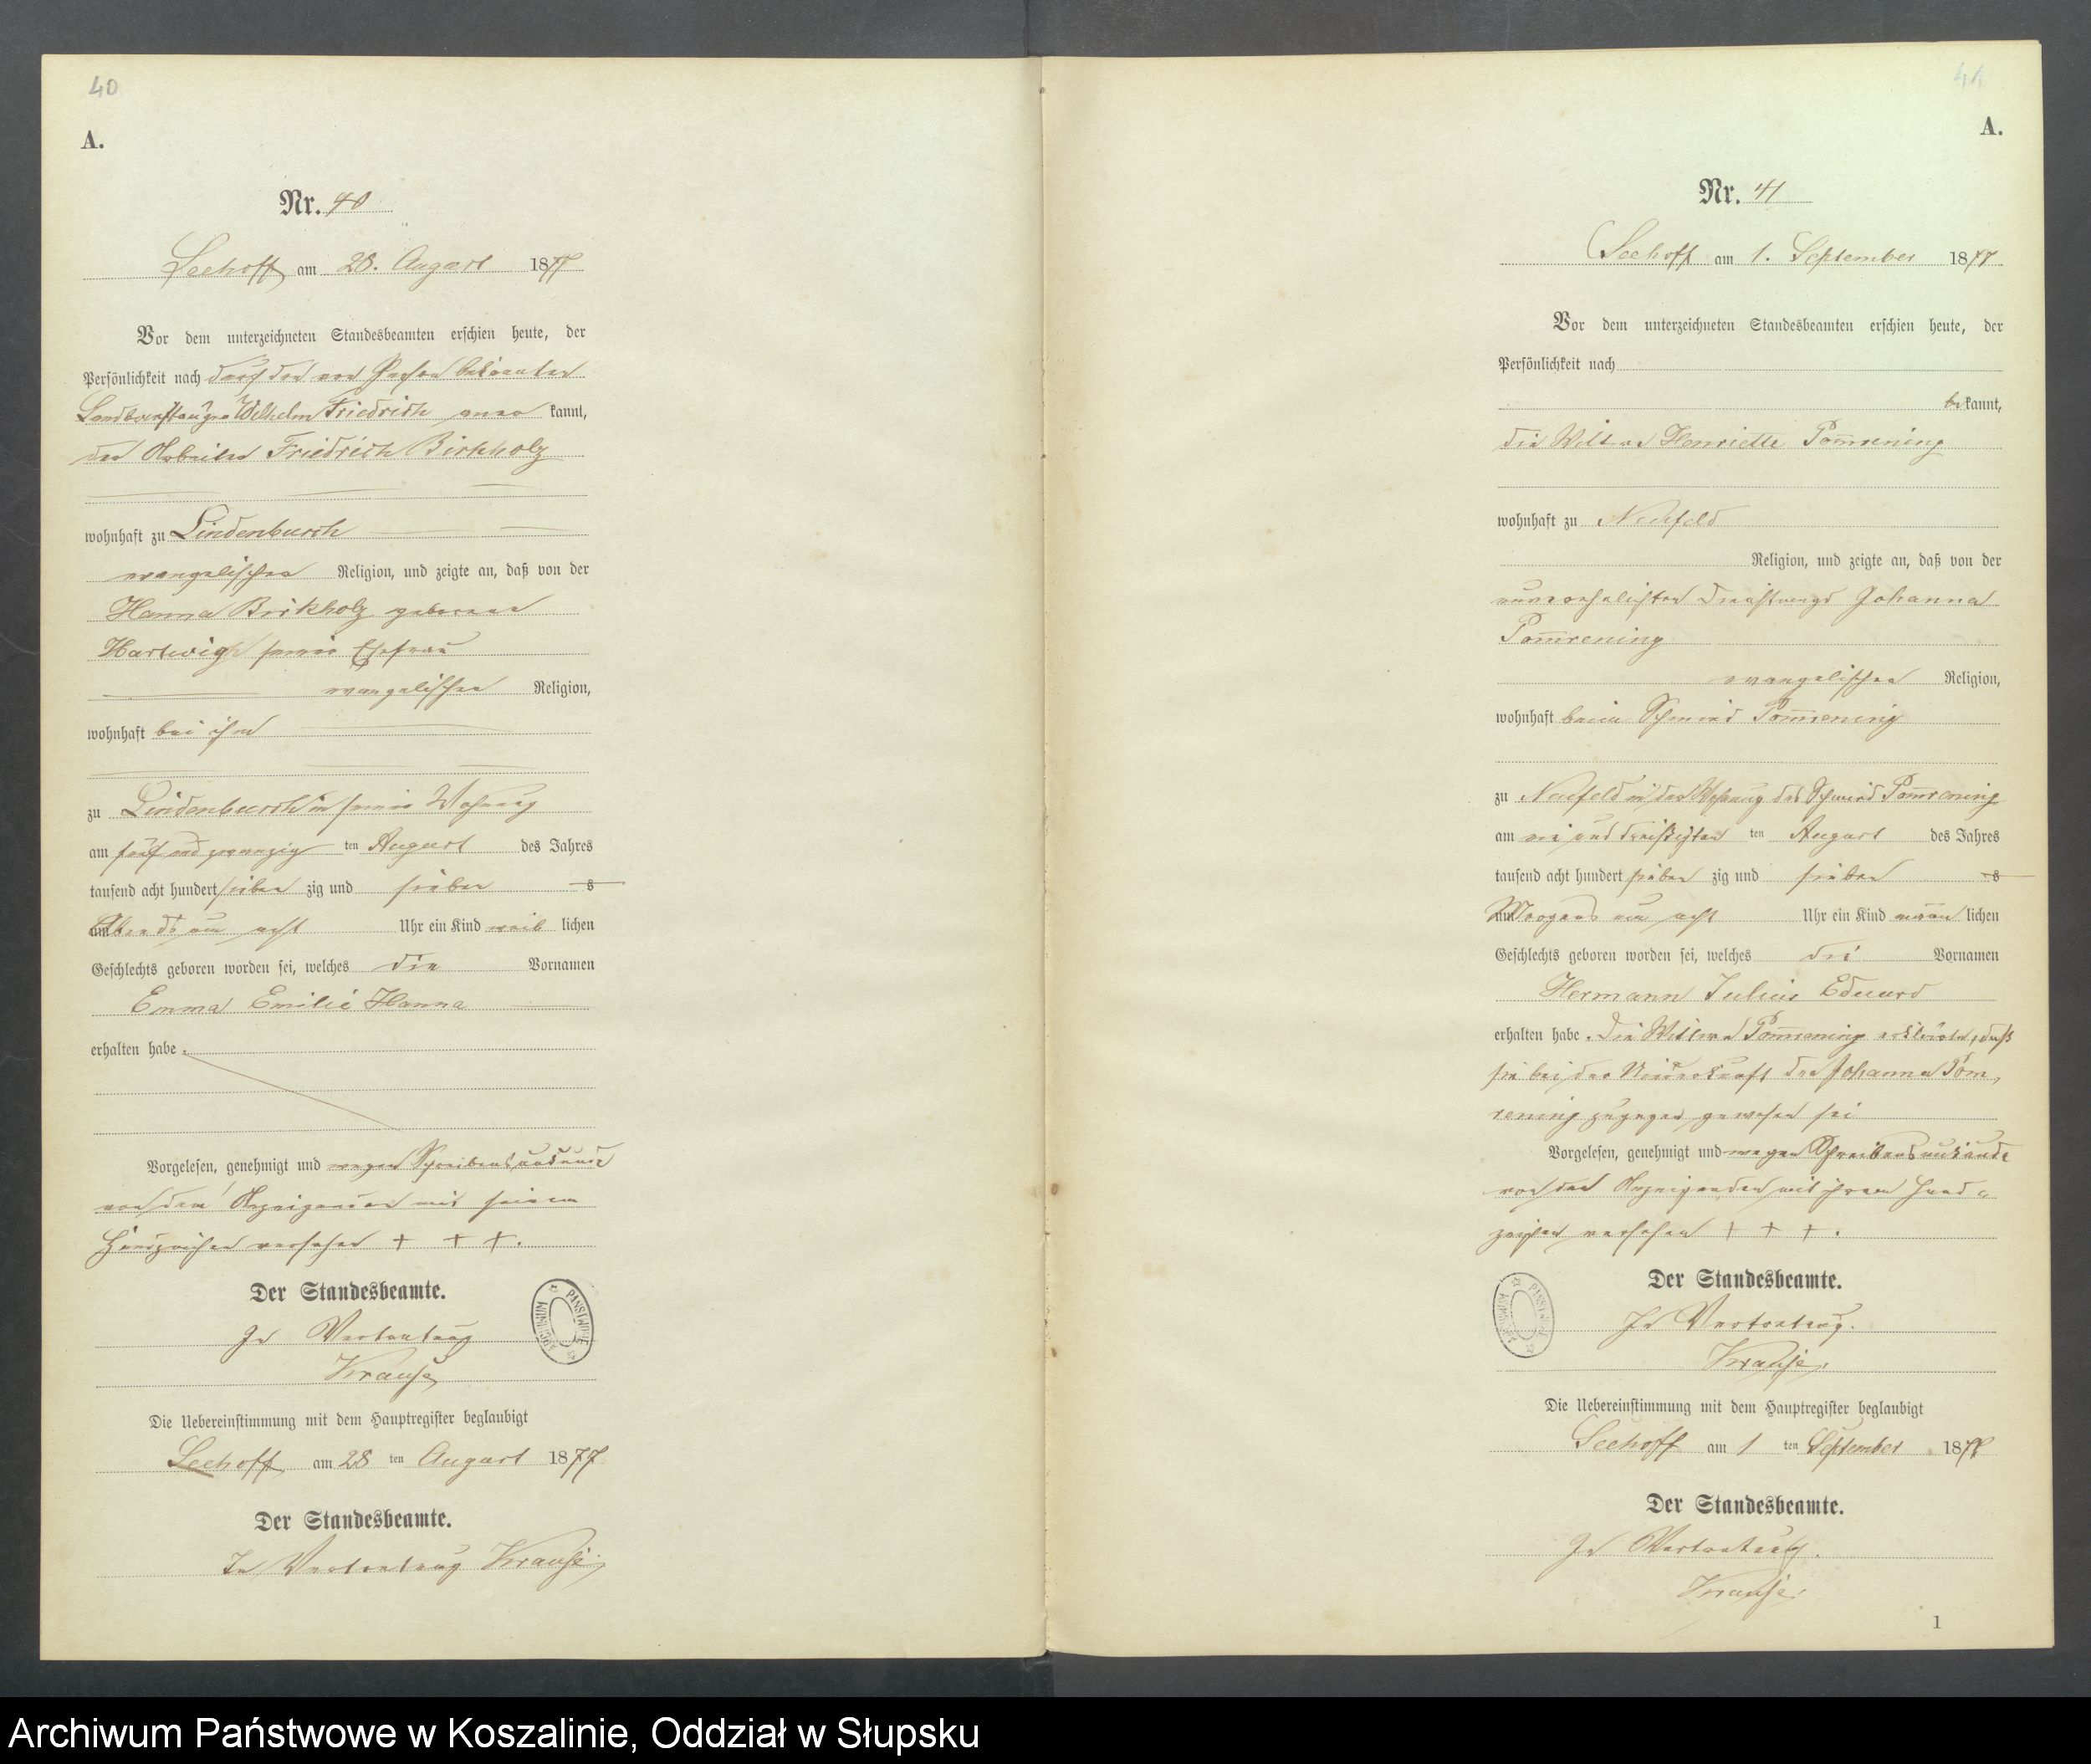 40
A.
Nr. 40
Seehoff am 28. August 1877
Vor dem unterzeichneten Standesbeamten erschien heute, der
Persönlichkeit nach durch den von Person bekannten
Wilhelm Friedrich aner kannt,
der Arbeiter Friedrich Birkholz
wohnhaft zu Lindenbusch
evangelischer Religion, und zeigte an, daß von der
Hanna Birkholz geborene
Hartwig seiner Ehefrau
evangelischer Religion,
wohnhaft bei ihm
zu Lindenbusch in seiner Wohnung
am fünf und zwanzig ten August des Jahres
tausend acht hundert sieben zig und sieben
Abends um acht Uhr ein Kind weib lichen
Geschlechts geboren worden sei, welches die Vornamen
Emma Emilie Hanna
erhalten habe.
Vorgelesen, genehmigt und wegen Schreibensunkunde
von dem Anzeigenden mit seinem
Handzeichen versehen + + +.
Der Standesbeamte.
In Vertretung
Krause
ARCHIWUM PAŃSTWOWE
Die Uebereinstimmung mit dem Hauptregister beglaubigt
Seehoff am 28 ten August 1877
Der Standesbeamte.
In Vertretung Krause.
41
A.
Nr. 41
Seehoff am 1. September 1877
Vor dem unterzeichneten Standesbeamten erschien heute, der
Persönlichkeit nach
be kannt,
die Wittwe Henriette Pom̅rening
wohnhaft zu Neufeld
Religion, und zeigte an, daß von der
unverehelichten Dienstmagd Johanna
Pom̅rening
evangelischer Religion,
wohnhaft beim Schmied Pom̅rening
zu Neufeld in der Wohnung des Schmied Pom̅rening
am ein und dreißigsten ten August des Jahres
tausend acht hundert sieben zig und sieben
Morgens um acht Uhr ein Kind männ lichen
Geschlechts geboren worden sei, welches die Vornamen
Hermann Julius Eduard
erhalten habe. Die Wittwe Pom̅rening erklärte, daß
sie bei der Niederkunft der Johanna Pom̅,
rening zugegen gewesen sei
Vorgelesen, genehmigt und wegen Schreibensunkunde
von der Anzeigenden mit ihrem Hand-
zeichen versehen + + +.
Der Standesbeamte.
In Vertretung.
Krause.
ARCHIWUM PAŃSTWOWE
Die Uebereinstimmung mit dem Hauptregister beglaubigt
Seehoff am 1 ten September 1877
Der Standesbeamte.
In Vertretung.
Krause.
1
Archiwum Państwowe w Koszalinie, Oddział w Słupsku